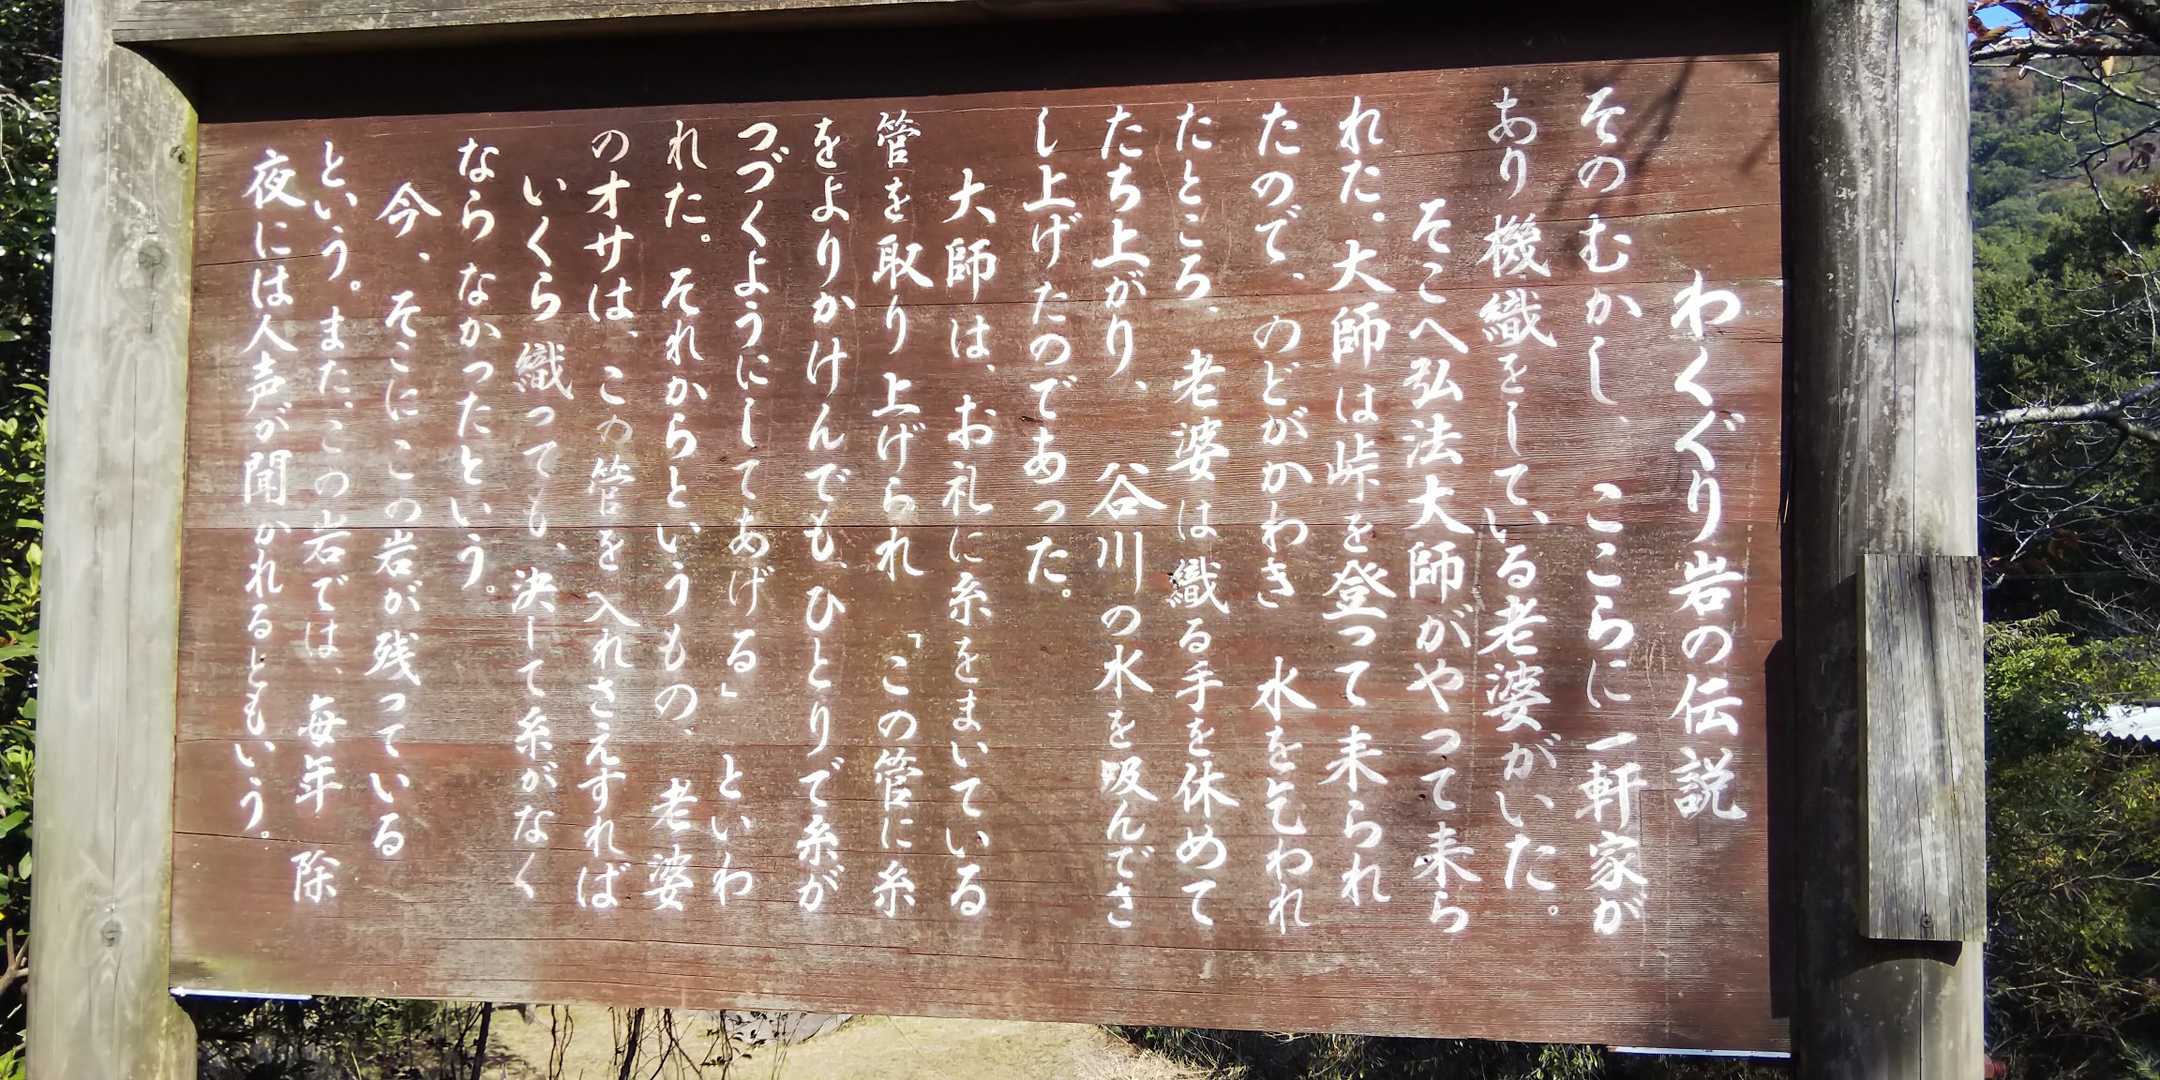 わくぐり岩の伝説
そのむかし、こころに一軒家が
あり機織をしている老婆がいた。
そこへ弘法大師がやって来ら
れた。大師は峠を登って来られ
たので、のどがかわき 水を乞われ
たところ、老婆は織る手を休めて
たち上がり、谷川の水を吸んでさ
し上げたのであった。
大師は、お礼に糸をまいている
管を取り上げられ「この管に糸
をよりかけんでも、ひとりで糸が
つづくようにしてあげる」といわ
れた。それからというもの、老婆
のオサは、この管を入れさえすれば
いくら織っても、決して糸がなく
ならなかったという。
今、そこにこの岩が残っている
という。また、この岩では、毎年 除
夜には人声が聞かれるともいう。